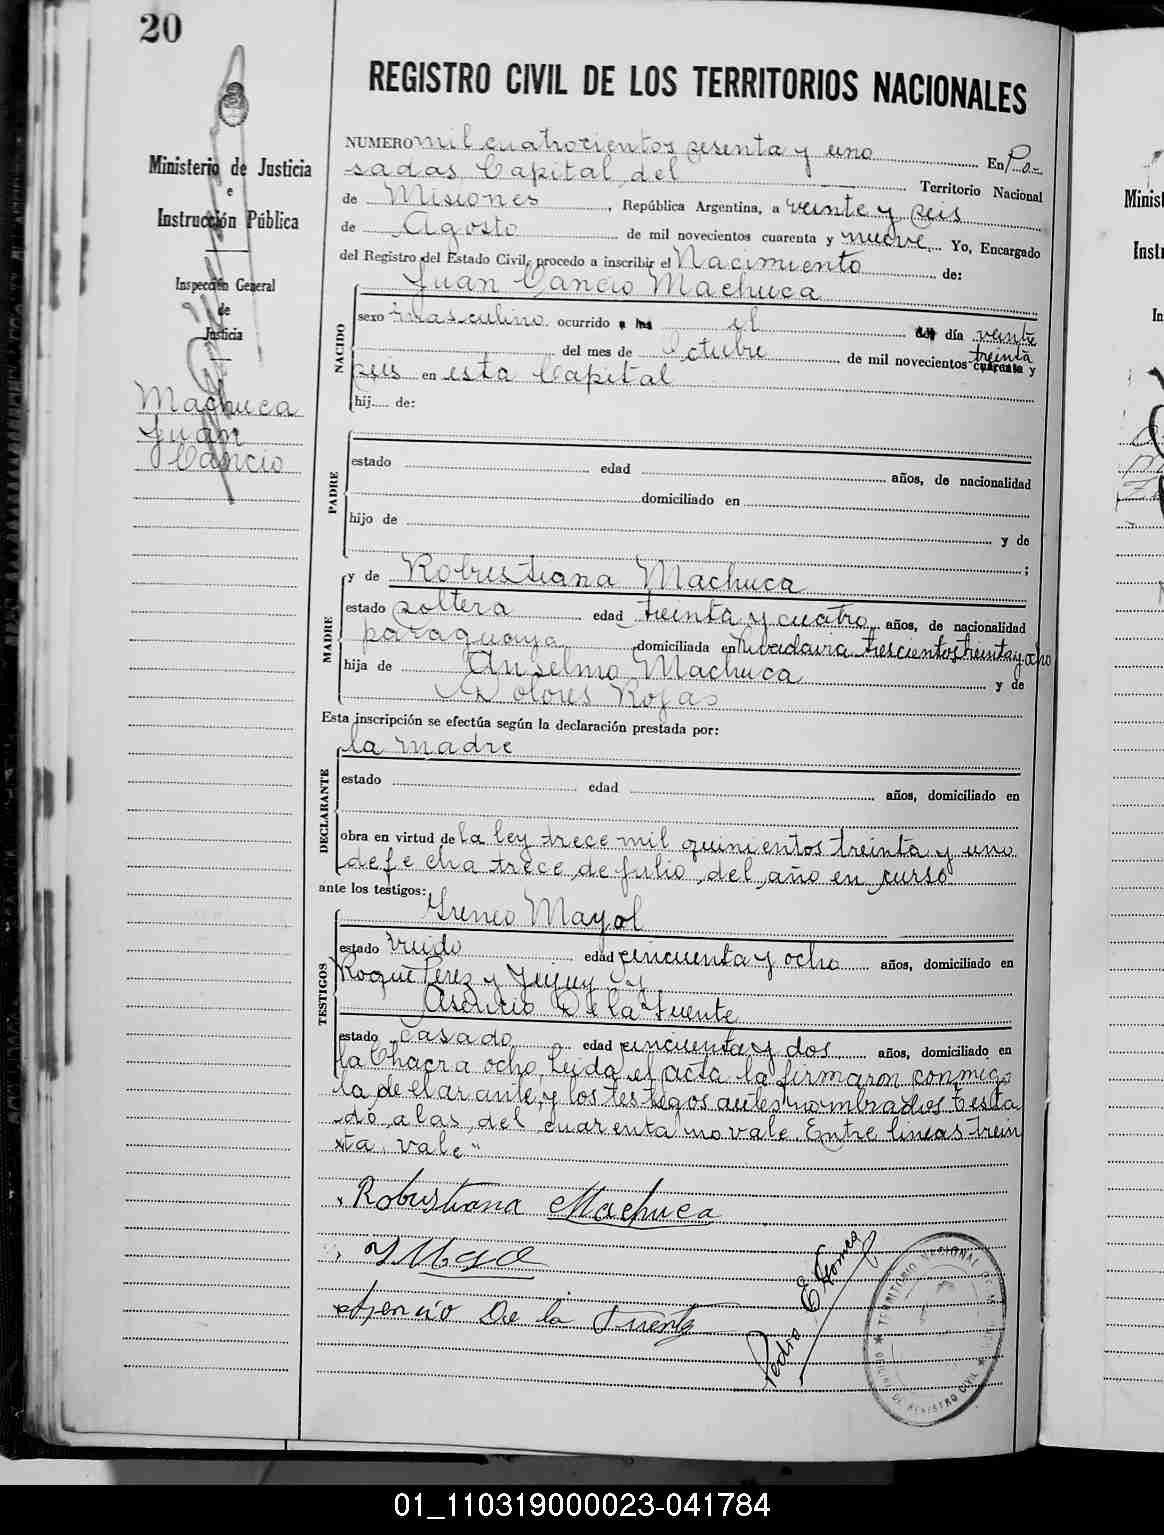 20
Ministerio de Justicia
e
Instrucción Pública
Inspección General
de
Justicia
Machuca
Juan
Cancio
REGISTRO CIVIL DE LOS TERRITORIOS NACIONALES
NUMERO mil cuatrocientos sesenta y uno En Po-
sadas Capital del Territorio Nacional
de Misiones, República Argentina, a veinte y seis
de Agosto de mil novecientos cuarenta y nueve. Yo, Encargado
del Registro del Estado Civil, procedo a inscribir el Nacimiento de:
Juan Cancio Machuca
NACIDO
sexo masculino ocurrido a las el del día veinte
del mes de Octubre de mil novecientos treinta cuarenta y
seis en esta Capital
hij..... de:
PADRE
estado edad años, de nacionalidad
domiciliado en
hijo de y de
;
MADRE
y de Robustiana Machuca
estado soltera edad treinta y cuatro años, de nacionalidad
paraguaya domiciliada en Rivadavia trescientos treinta y ocho
hija de Anselmo Machuca y de
Dolores Rojas
Esta inscripción se efectúa según la declaración prestada por:
DECLARANTE
la madre
estado edad años, domiciliado en
obra en virtud de la ley trece mil quinientos treinta y uno
de fecha trece de julio del año en curso
ante los testigos:
TESTIGOS
Ireneo Mayol
estado viudo edad cincuenta y ocho años, domiciliado en
Roque Perez y Jujuy y
Asencio De la Fuente
estado casado edad cincuenta y dos años, domiciliado en
la Chacra ocho. Leida el acta la firmaron conmigo
la declarante y los testigos antes nombrados Testa
do, a las, del, cuarenta no vale. Entre lineas trein
ta, vale"
Robustiana Machuca
Asencio De la Fuente
Pedro E Gomez
TERRITORIO NACIONAL DE
REGISTRO CIVIL
01_110319000023-041784